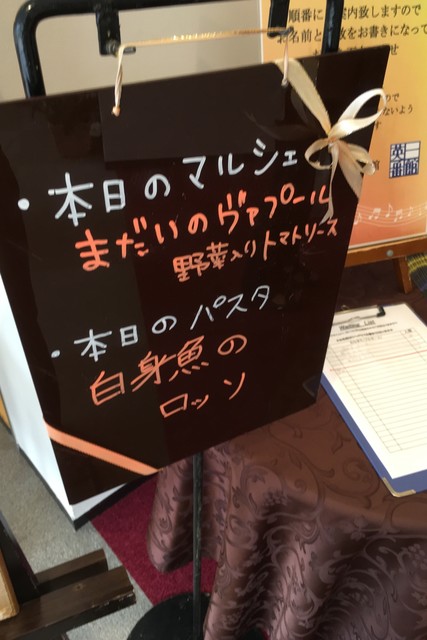 ・本日のマルシェ
まだいのヴァプール
野菜入りトマトソース
・本日のパスタ
白身魚の
ロッソ
順番に
案内致しますので
お名前と
をお書きになって
Waiting List
英一番館